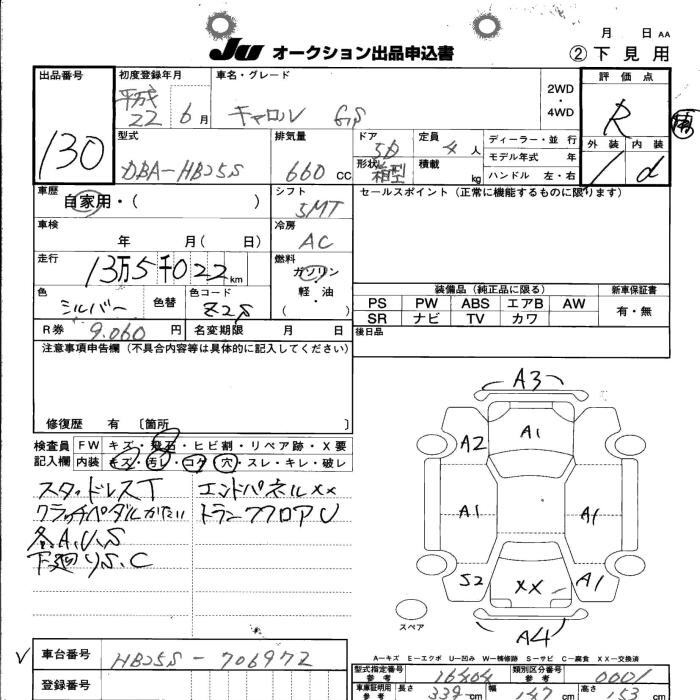 月 日 AA
JU オークション出品申込書 ②下見用
出品番号 130
初度登録年月 平成 22 6月
車名・グレード キャロル GS
2WD・4WD
評価点 R
外装 1 内装 d
型式 DBA-HB25S
排気量 660 cc
ドア 5D
形状 箱型
定員 4人
積載 kg
ディーラー・並行
モデル年式 年
ハンドル 左・右
車歴 自家用・( )
シフト 5MT
セールスポイント(正常に機能するものに限ります)
車検 年 月( 日)
冷房 AC
走行 13万5千022km
燃料 ガソリン 軽・油 ( )
色 シルバー 色替
色コード Z2S
装備品(純正品に限る)
PS PW ABS エアB AW
SR ナビ TV カワ
新車保証書 有・無
R券 9.060円 名変期限 月 日
後日品
注意事項申告欄(不具合内容等は具体的に記入してください)
修復歴 有 〔箇所 〕
検査員記入欄
FW キズ・飛石・ヒビ割・リペア跡・X要
内装 キズ・汚レ・コゲ・穴・スレ・キレ・破レ
スタッドレスT
クラッチペダルかたい
各A.U.S
下廻りS.C
エンドパネルXX
トランクフロアU
A3
A2 A1
A1 A1
S2 XX A1
スペア
A4
A-キズ E-エクボ U-凹み W-補修跡 S-サビ C-腐食 XX-交換済
車台番号 HB25S-706972
登録番号
型式指定番号 参考 16404
類別区分番号 参考 0001
車車証明用 参考 長さ 339cm 幅 147cm 高さ 153cm